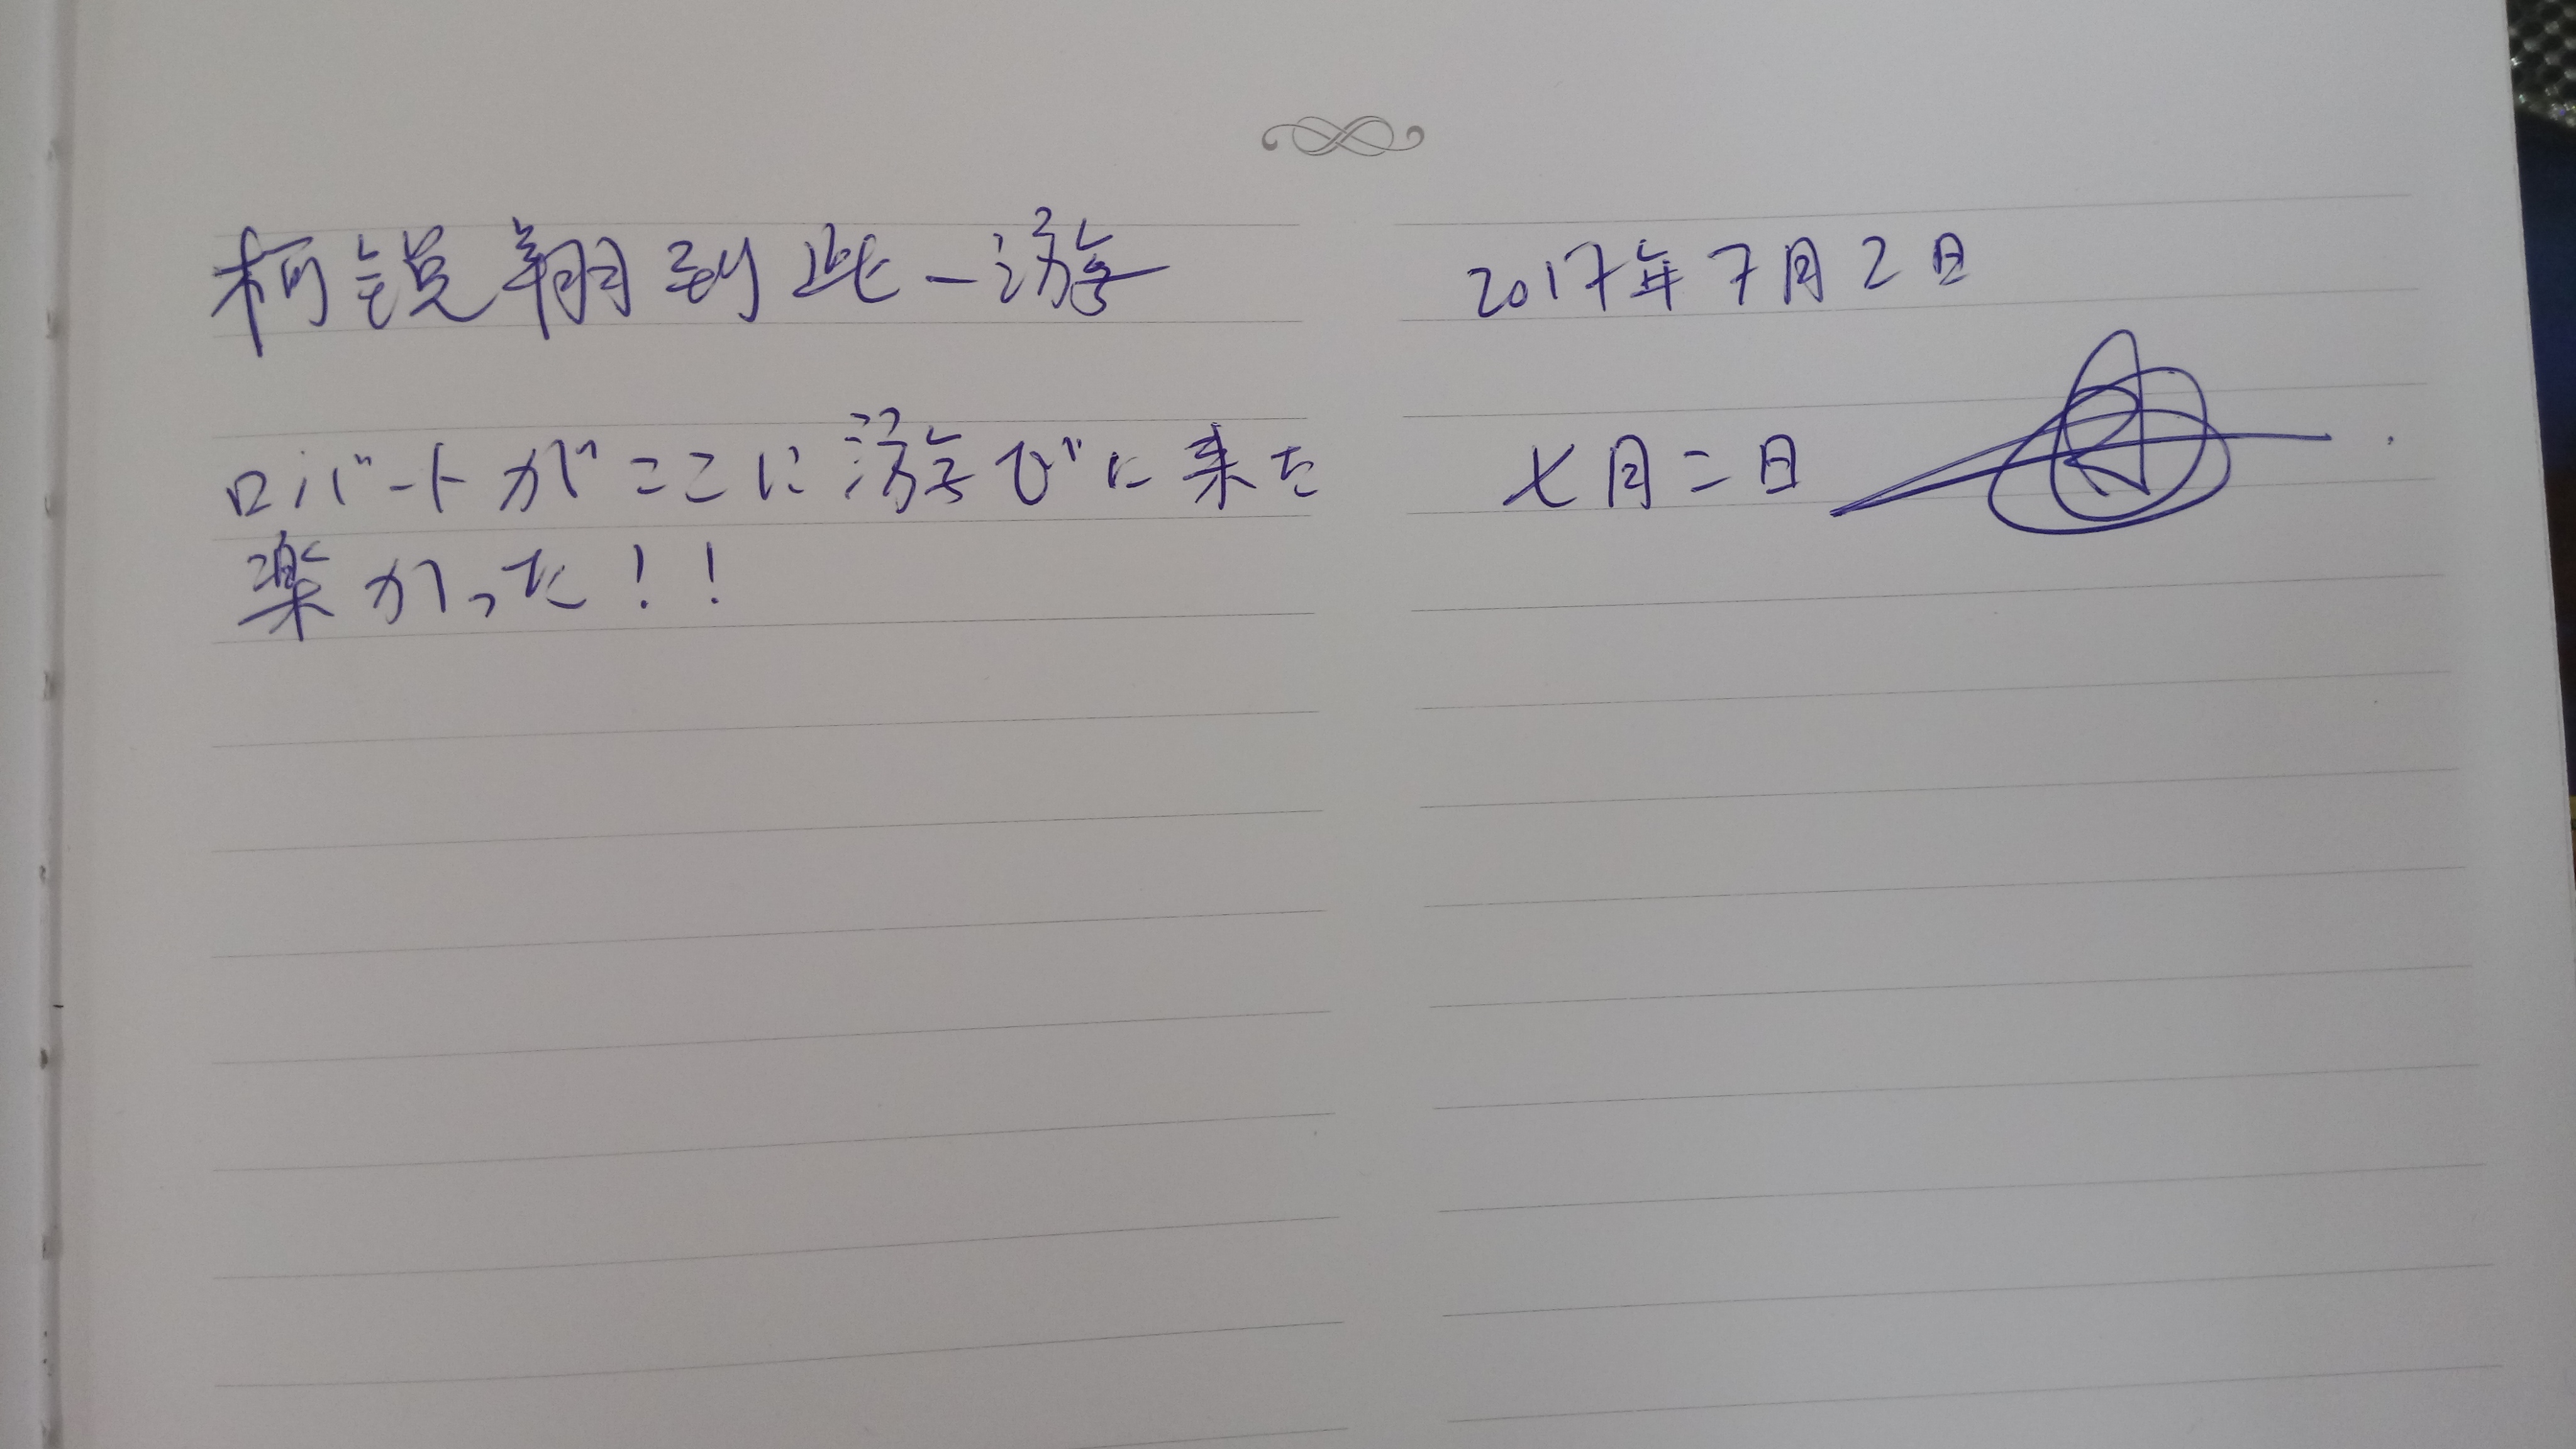 柯锐翔到此一游
2017年7月2日
ロバートがここに游びに来た
七月二日
楽かった!!